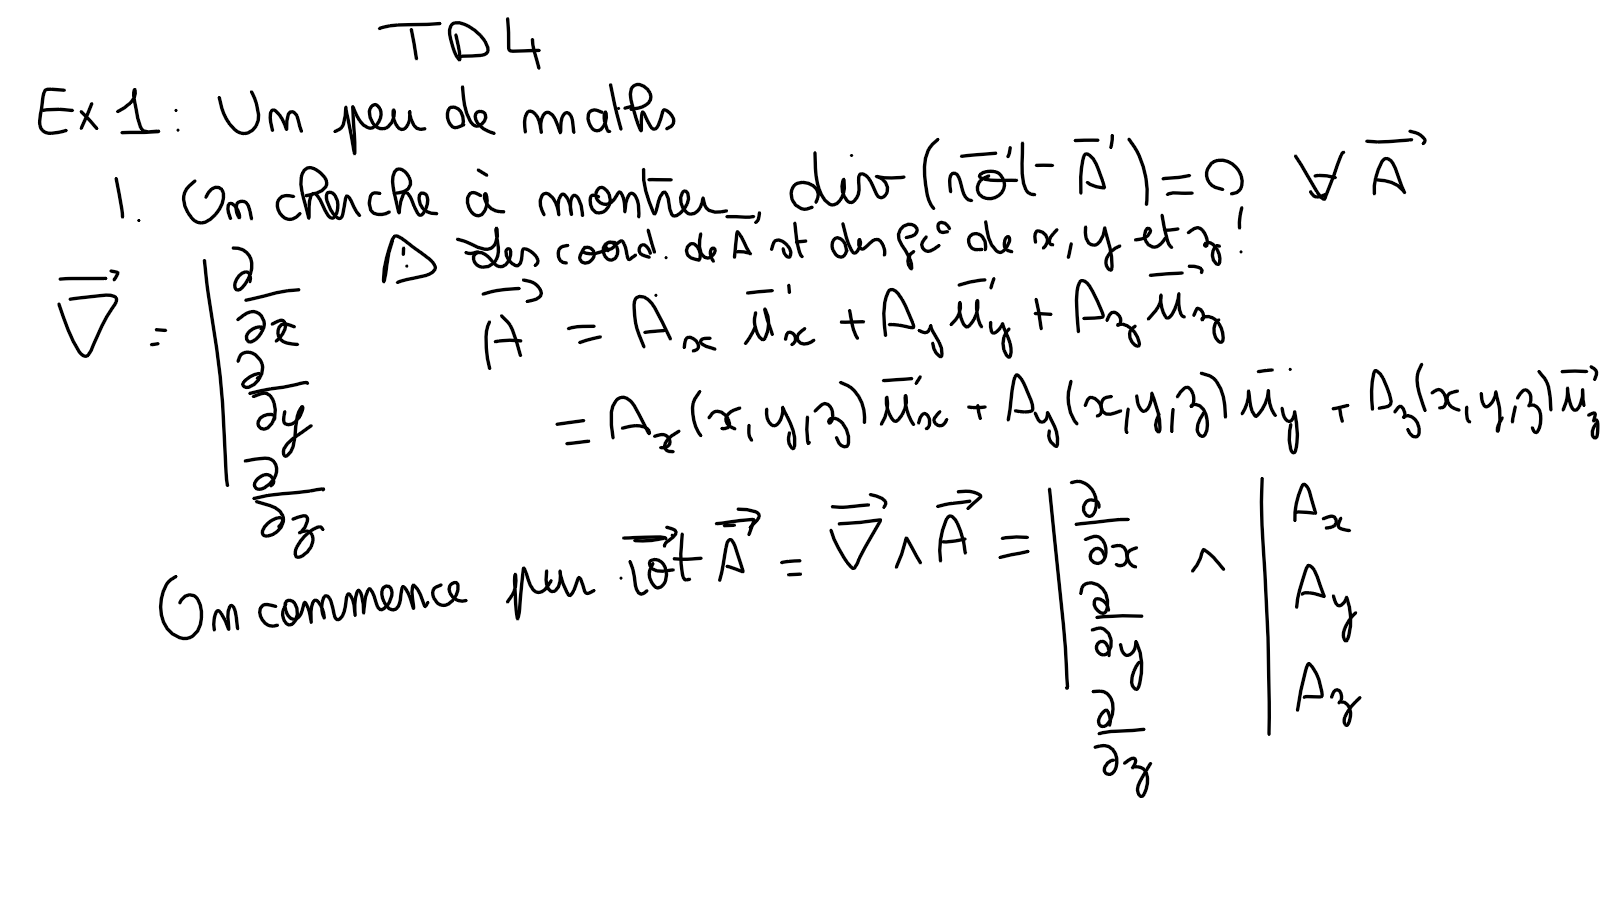 TD4
Ex 1 : Un peu de maths
1. On cherche à montrer div(rot A) = 0 ∀ A
⚠ Les coord. de A st des fc° de x, y et z !
∇ = | ∂/∂x ∂/∂y ∂/∂z
A = Ax ux + Ay uy + Az uz
= Ax(x,y,z) ux + Ay(x,y,z) uy + Az(x,y,z) uz
On commence par rot A = ∇ ∧ A = | ∂/∂x ∂/∂y ∂/∂z ∧ | Ax Ay Az